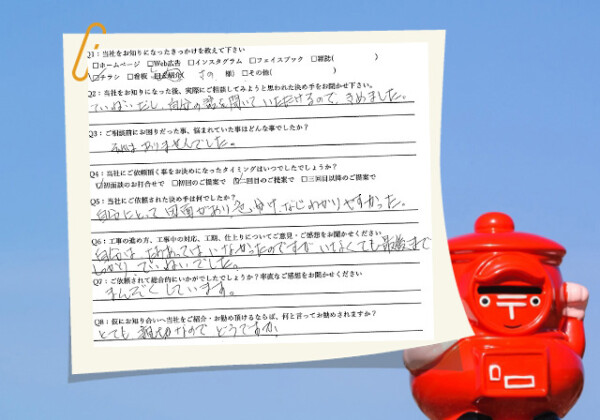 Q1：当社をお知りになったきっかけを教えて下さい
□ホームページ □Web広告 □インスタグラム □フェイスブック □雑誌( )
□チラシ □看板 ( さの 様) □その他( )
Q2：当社をお知りになった後、実際にご相談してみようと思われた決め手をお聞かせ下さい。
ていねいだし、自分の話を聞いていただけるので、きめました。
Q3：ご相談前にお困りだった事、悩まれていた事はどんな事でしたか？
ありませんでした。
Q4：当社にご依頼頂く事をお決めになったタイミングはいつでしたでしょうか？
初面談のお打合せで □初回のご提案で 二回目のご提案で □三回目以降のご提案で
Q5：当社にご依頼された決め手は何でしたか？
自分にとって 図面があり 色分けなど わかりやすかった。
Q6：工事の進め方、工事中の対応、工期、仕上りについてご意見・ご感想をお聞かせください。
自分は たちあっては いなかったのですが いなくても最後まで
しっかり、ていねいでした。
Q7：ご依頼されて総合的にいかがでしたでしょうか？率直なご感想をお聞かせください
まんぞくしています。
Q8：仮にお知り合いへ当社をご紹介・お勧め頂けるならば、何と言ってお勧めされますか？
とても 親切なので どうですか。